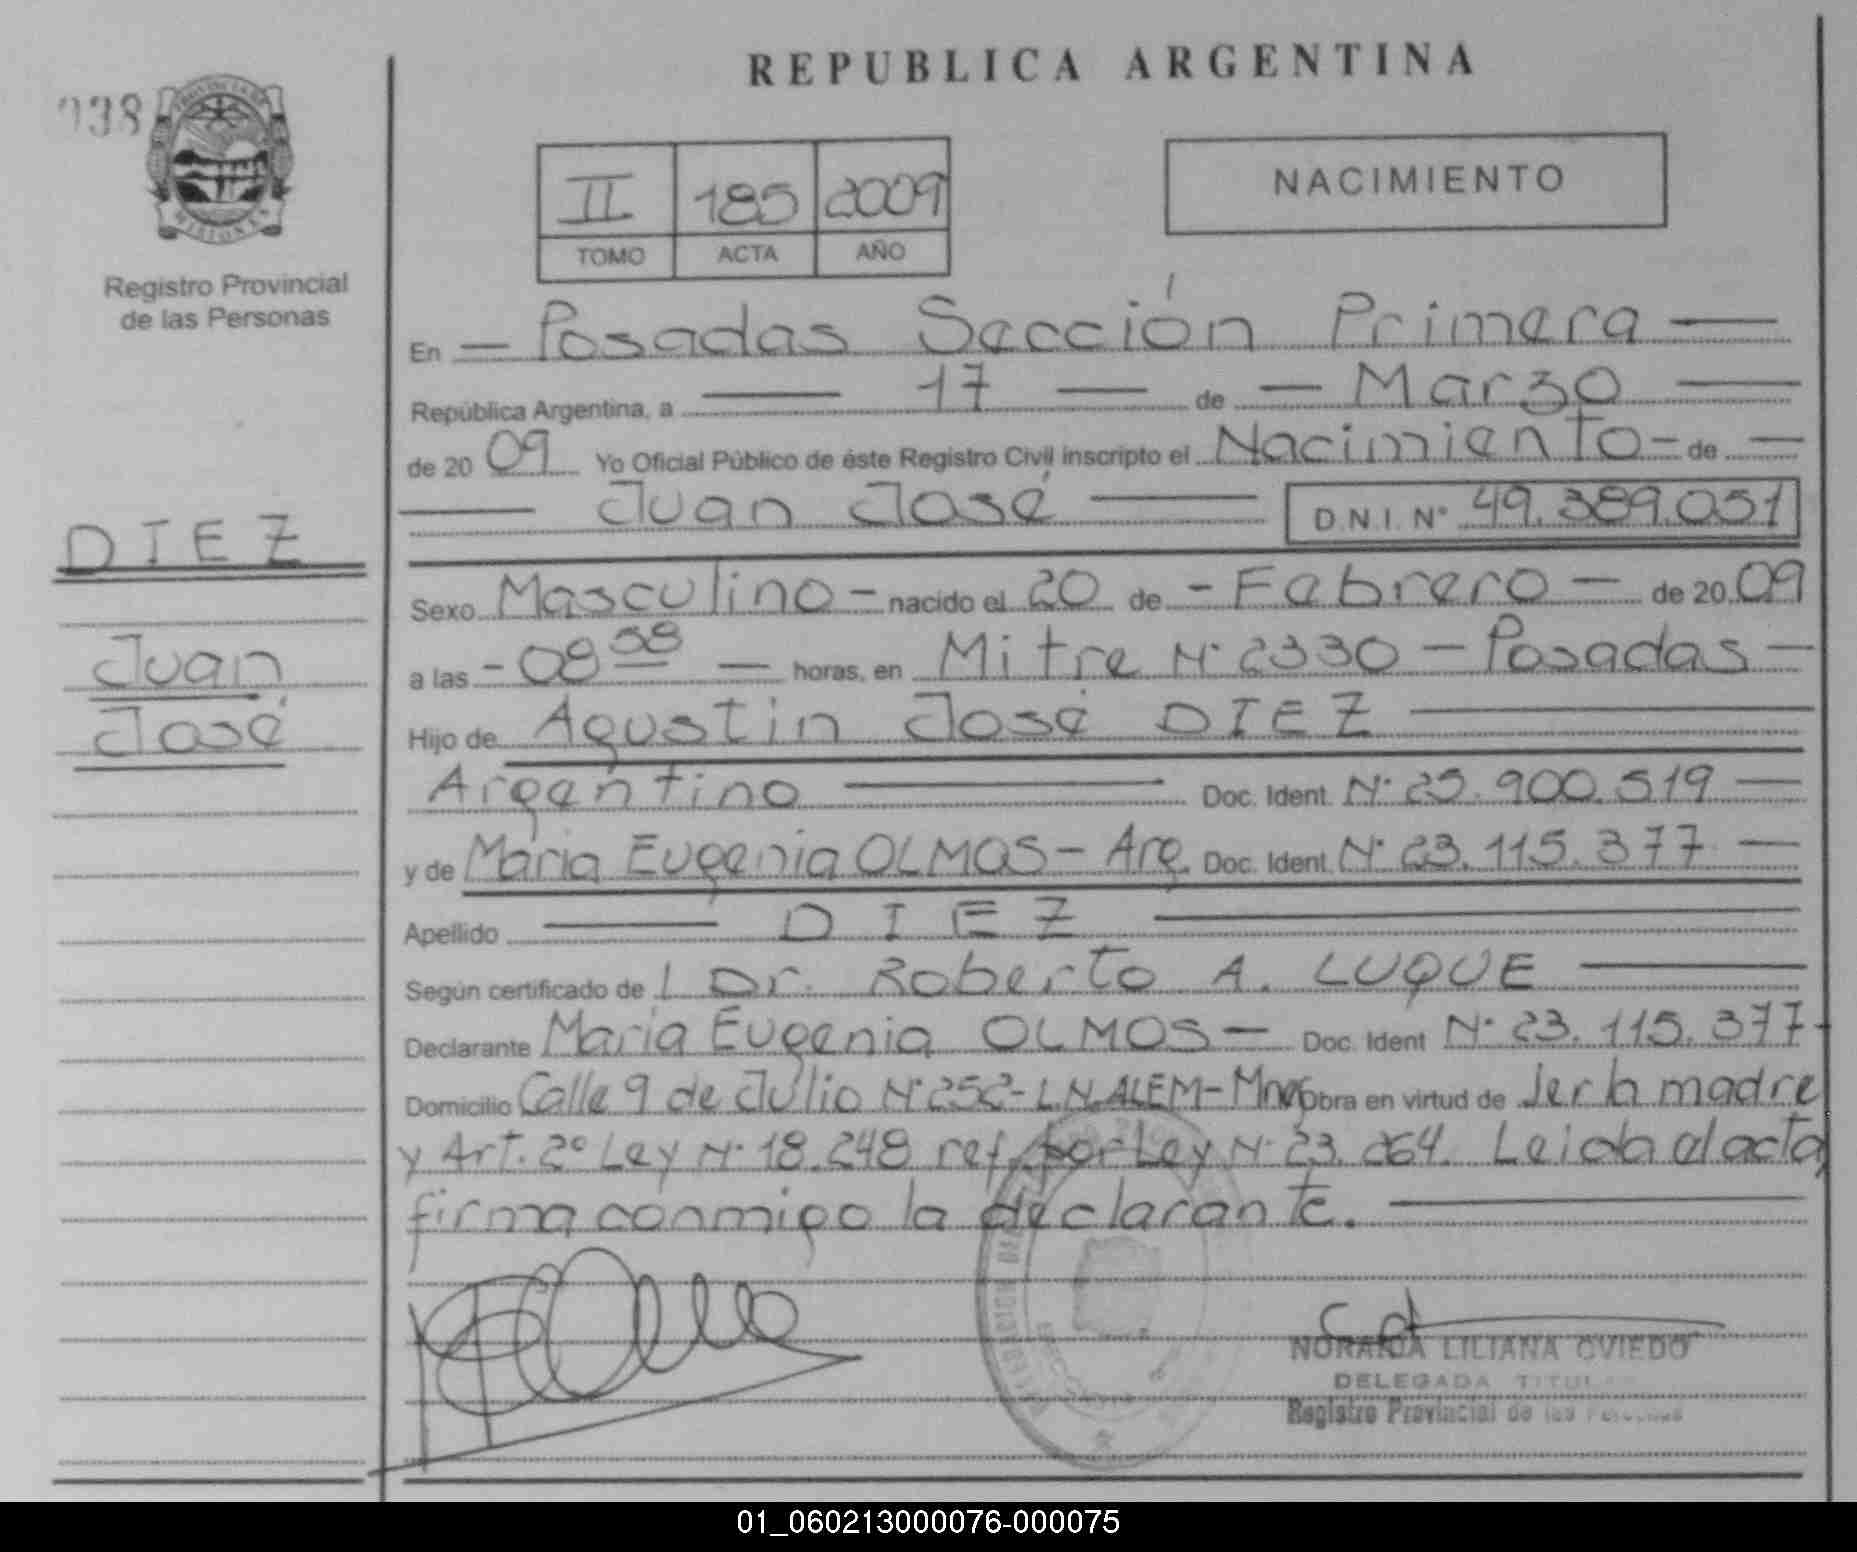 REPUBLICA ARGENTINA
038
PROVINCIA DE
MISIONES
Registro Provincial
de las Personas
II 185 2009
TOMO ACTA AÑO
NACIMIENTO
En — Posadas Sección Primera —
República Argentina, a — 17 — de — Marzo —
de 20 09 Yo Oficial Público de éste Registro Civil inscripto el Nacimiento — de —
— Juan José — D.N.I. N° 49.389.051
DIEZ
Juan
José
Sexo Masculino — nacido el 20 de — Febrero — de 20 09
a las — 08 58 — horas, en Mitre N° 2330 — Posadas —
Hijo de Agustin José DIEZ —
Argentino — Doc. Ident. N° 25.900.519 —
y de Maria Eugenia OLMOS — Arg. Doc. Ident. N° 23.115.377 —
Apellido — DIEZ —
Según certificado de l Dr. Roberto A. LUQUE —
Declarante Maria Eugenia OLMOS — Doc. Ident N° 23.115.377 -
Domicilio Calle 9 de Julio N° 252 - L.N.ALEM - Mnes Obra en virtud de ser la madre
y Art. 2° Ley N° 18.248 ref. por Ley N° 23.264. Leida el acta,
firma conmigo la declarante. —
LILIANA OVIEDO
DELEGADA TITULAR
Registro Provincial de las Personas
01_060213000076-000075